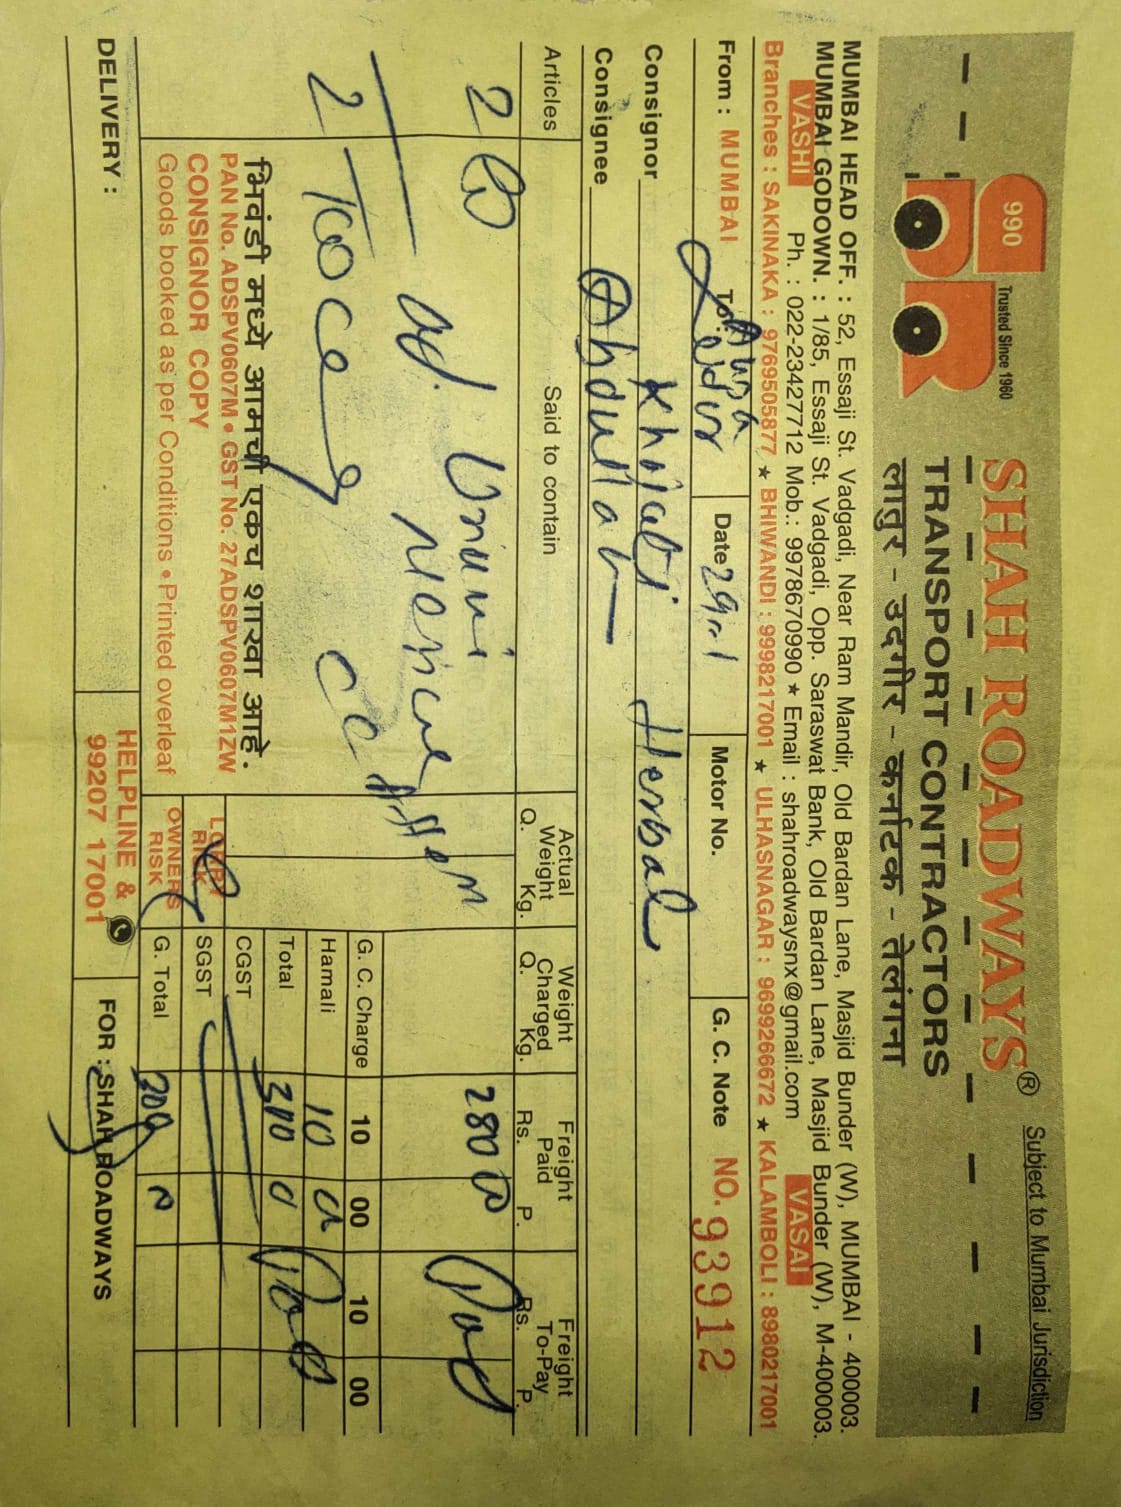 Subject to Mumbai Jurisdiction
990
Trusted Since 1960
SHAH ROADWAYS®
TRANSPORT CONTRACTORS
लातुर - उदगीर - कर्नाटक - तेलंगना
MUMBAI HEAD OFF. : 52, Essaji St. Vadgadi, Near Ram Mandir, Old Bardan Lane, Masjid Bunder (W), MUMBAI - 400003.
MUMBAI GODOWN. : 1/85, Essaji St. Vadgadi, Opp. Saraswat Bank, Old Bardan Lane, Masjid Bunder (W), M-400003.
VASHI Ph. : 022-23427712 Mob.: 9978670990 ★ Email : shahroadwaysnx@gmail.com VASAI
Branches : SAKINAKA : 9769505877 ★ BHIWANDI : 9998217001 ★ ULHASNAGAR : 9699266672 ★ KALAMBOLI : 8980217001
From : MUMBAI To : Date Motor No. G. C. Note NO. 93912
Consignor Khojati Herbal
Consignee Abdullah
Articles Said to contain Actual Weight Q. Kg. Weight Charged Q. Kg. Freight Paid Rs. P. Freight To-Pay Rs. P.
2 280 Paid
2
G. C. Charge 10 00 10 00
Hamali 10
Total 300 Paid
CGST
SGST
G. Total 300
भिवंडी मध्ये आमची एकच शाखा आहे.
PAN No. ADSPV0607M • GST No. 27ADSPV0607M1ZW
CONSIGNOR COPY
Goods booked as per Conditions • Printed overleaf
LORRY RISK
OWNERS RISK
DELIVERY :
HELPLINE &
99207 17001
FOR : SHAH ROADWAYS